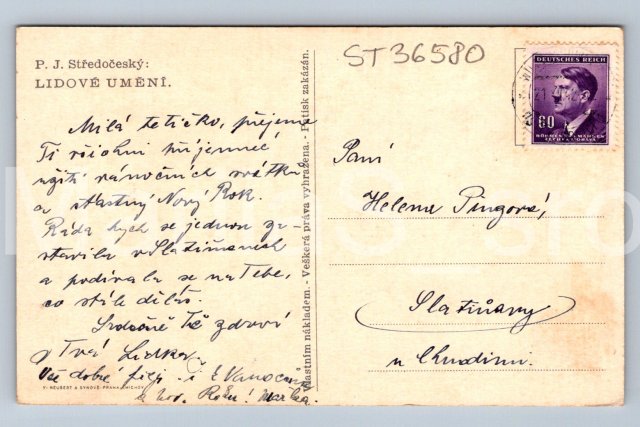 P. J. Středočeský:
LIDOVÉ UMĚNÍ.
ST36580
DEUTSCHES REICH
60
BÖHMEN u. MÄHREN
ČECHY a MORAVA
Milá tetičko, přejeme
Ti všichni příjemné
užití vánočních svátků
a šťastný Nový Rok.
Ráda bych se jednou za
stavila v Slatiňanech
a podívala se na Tebe,
co stále děláš.
Srdečně Tě zdraví
Tvá Lidka
Vše dobré přeji i k Vánocům
a nov. Roku! Mařka.
Vlastním nákladem. - Veškerá práva vyhražena. - Patisk zakázán.
V. NEUBERT A SYNOVÉ, PRAHA-SMÍCHOV
Paní
Helena Pingorá,
Slatiňany
u Chrudimi.